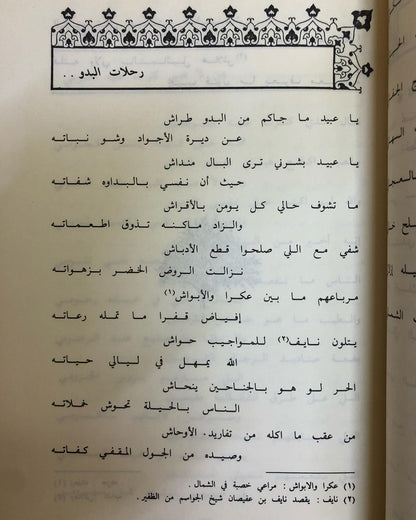 رحلات البدو ..
يا عبيد ما جاكم من البدو طراش
عن ديرة الأجواد وشو نباته
يا عبيد بشرني ترى البال منداش
حيث أن نفسي بالبداوه شفاته
ما تشوف حالي كل يومن بالأقراش
والزاد ماكنه تذوق اطعماته
شفي مع اللي صلحوا قطع الأدباش
نزالت الروض الخضر بزهواته
مرباعهم ما بين عكرا والأبواش(١)
إفياض قفرا ما تمله رعاته
يتلون نايف(٢) للمواجيب حواش
الله يمهل في ليالي حياته
الحر لو هو بالجناحين ينحاش
الناس بالحيلة تحوش خملاته
من عقب ما اكله من تفاريد. الأوحاش
وصيده من الجول المقفي كفاته
(١) عكرا والابواش : مراعي خصبة في الشمال .
(٢) نايف : يقصد نايف بن عفيصان شيخ الجواسم من الظفير .